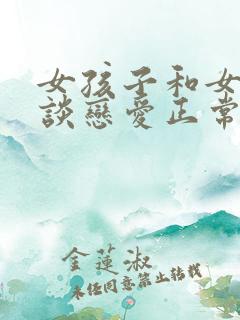 女孩子和女
談戀愛正常
金蓮淑
未任同意禁止转载